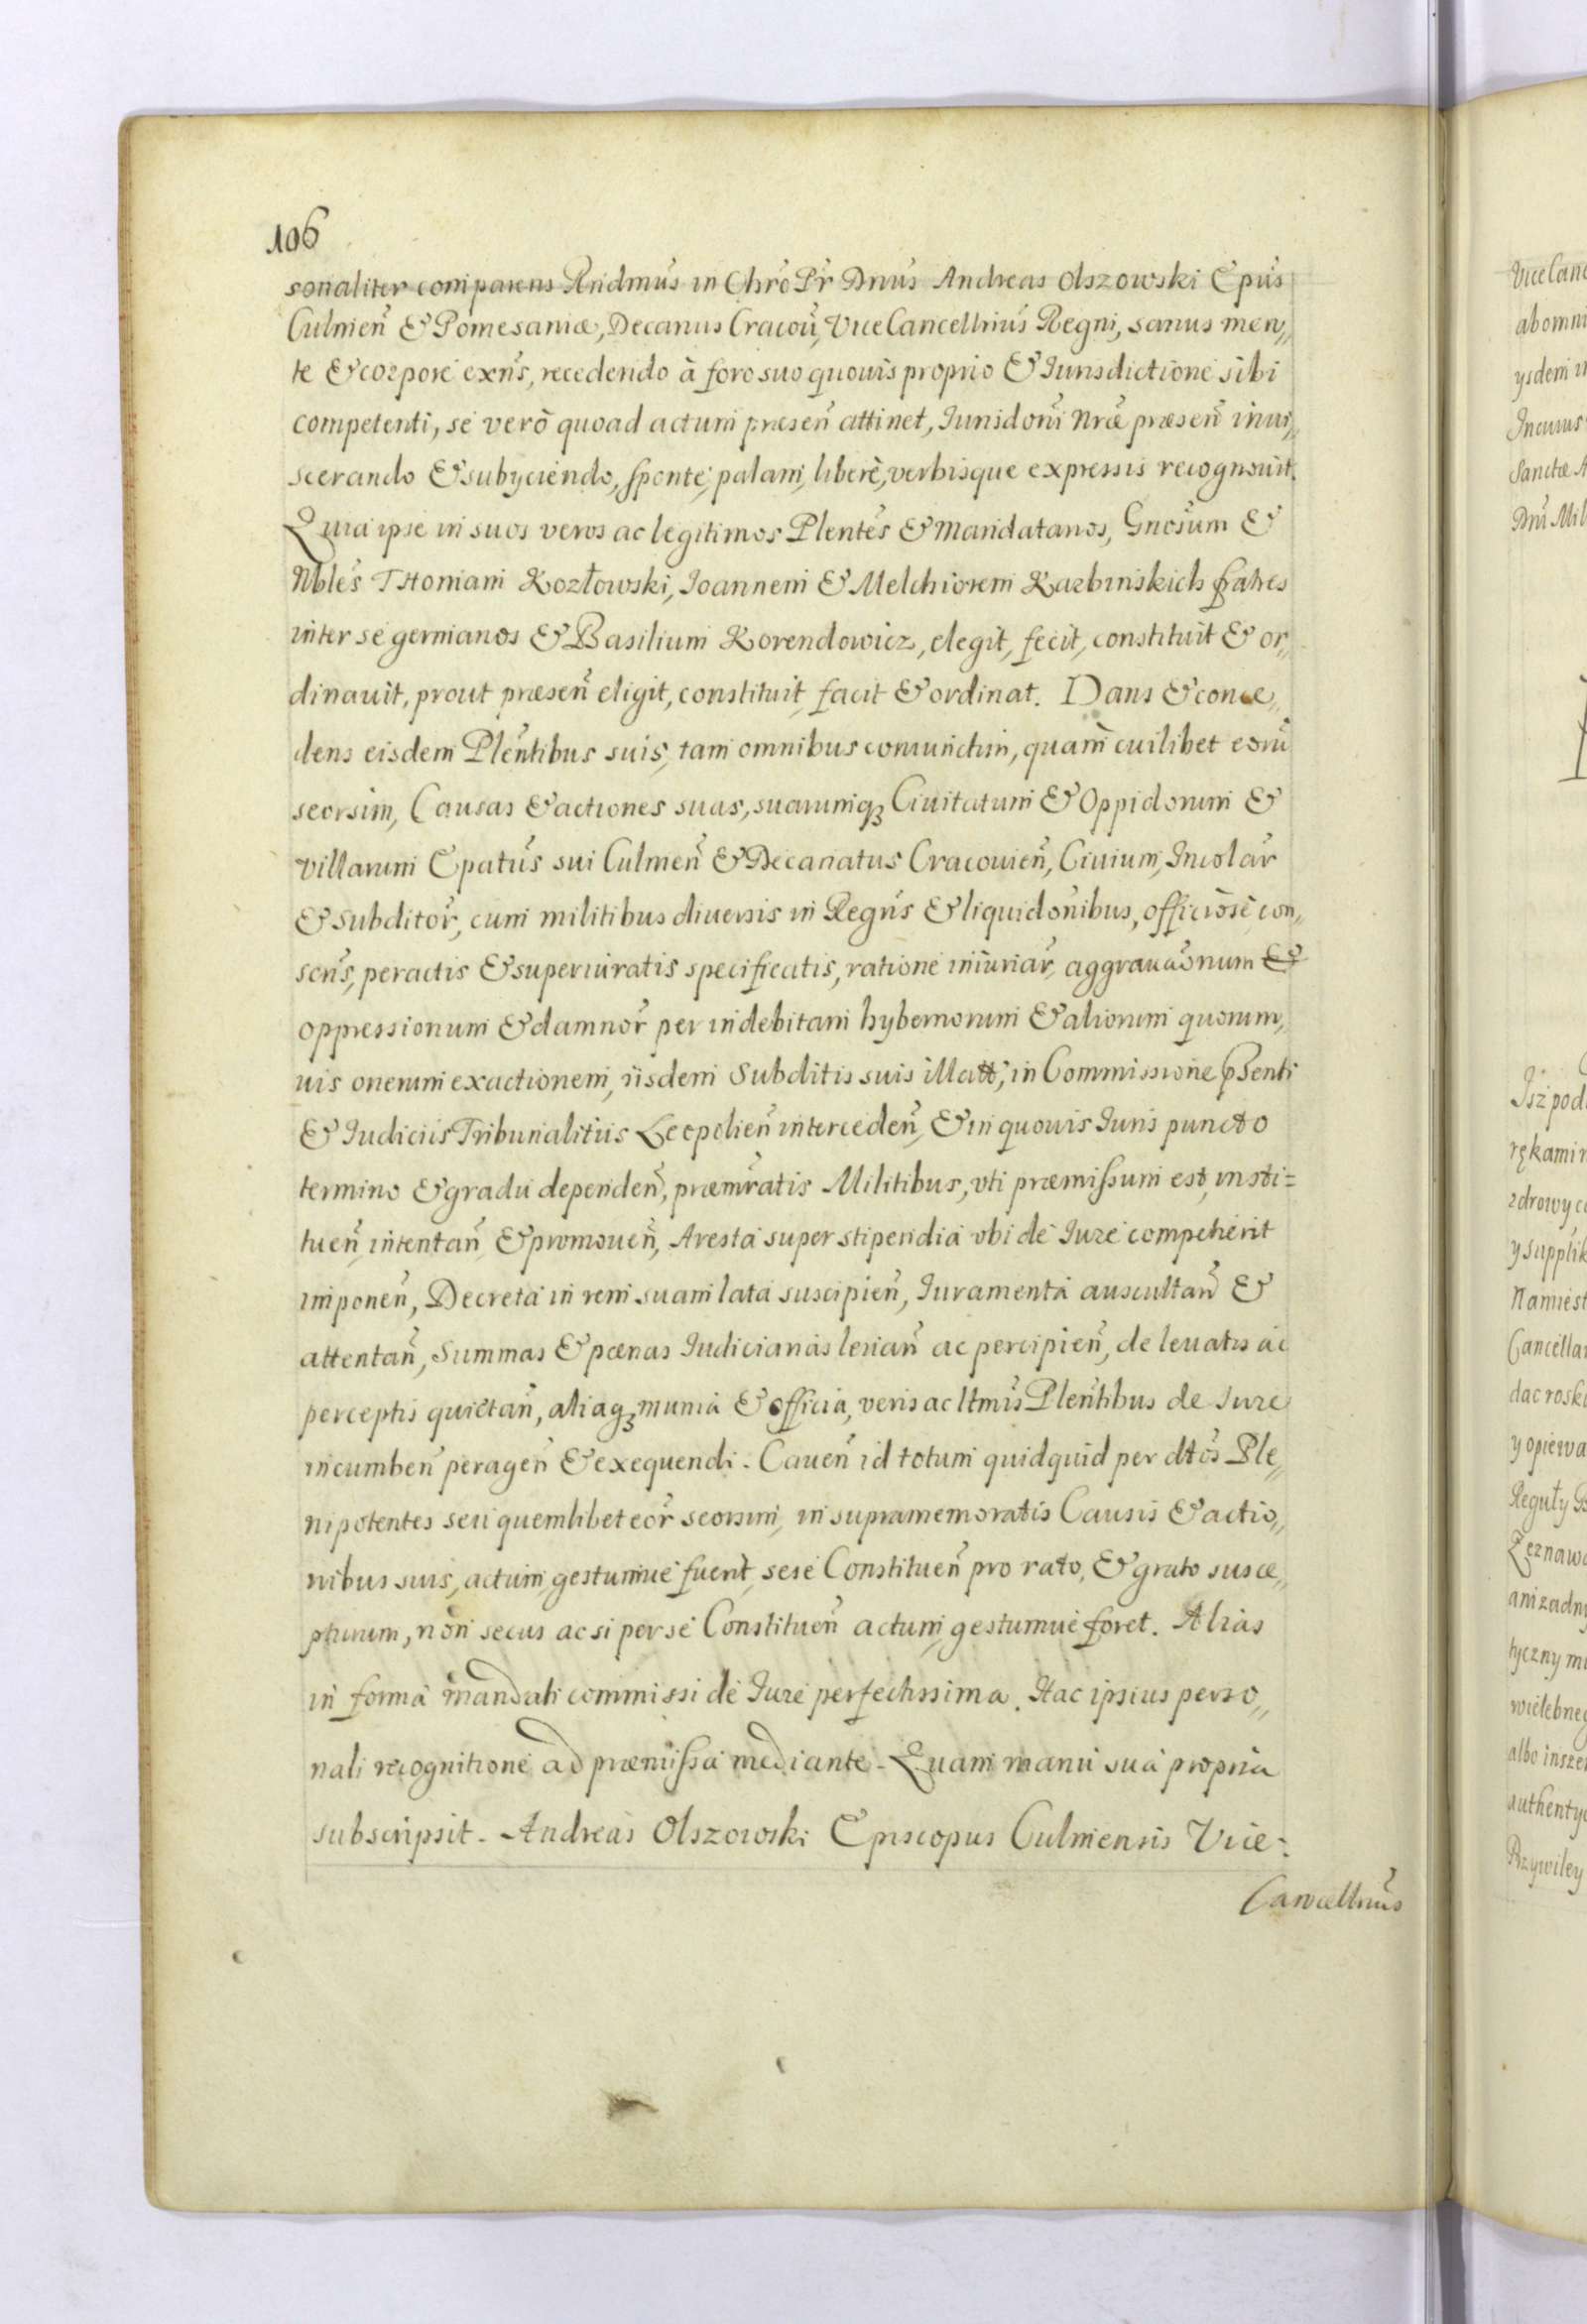 106
sonaliter comparens Rndmus in Chro Pr Dnus Andreas Olszowski Epus
Culmen & Pomesaniæ, Decanus Cracou, ViceCancellrius Regni, sanus men„
te & corpore exns, recedendo à foro suo quouis proprio & Iurisdictione sibi
competenti, se verò quoad actum præsen attinet, Iurisdoni Nræ præsen inui„
scerando & subyciendo, sponte, palam, liberè, verbisque expressis recognouit.
Quia ipse in suos veros ac legitimos Plentes & Mandatarios, Gnosum &
Nbles THomam Kozłowski, Ioannem & Melchiorem Karbinskich fratres
inter se germanos & Basilium Korendowicz, elegit, fecit, constituit & or„
dinauit, prout præsen eligit, constituit, facit & ordinat. Dans & conce„
dens eisdem Plentibus suis, tam omnibus coniunctim, quam cuilibet eoru
seorsim, Causas & actiones suas, suarumq3 Ciuitatum & Oppidorum &
villarum Epatus sui Culmen & Decanatus Cracouien, Ciuium, Incolar
& Subditor, cum militibus diuersis in Regns & liquidonibus, officiose con„
scns, peractis & superiuratis specificatis, ratione iniuriar, aggrauaonum &
oppressionum & damnor per indebitam hybernorum & aliorum quorum„
uis onerum exactionem, iisdem Subditis suis illatt, in Commissione pSenti
& Iudiciis Tribunalitiis Leopolien interceden, & in quouis Iuris puncto
termino & gradu dependen, præmratis Militibus, vti præmissum est, insti=
tuen, intentan & promouen, Aresta super stipendia vbi de Iure competierit
imponen, Decreta in rem suam lata suscipien, Iuramenta auscultan &
attentan, Summas & pœnas Iudiciarias leuan ac percipien, de leuatis ac
perceptis quietan, aliaq3 munia & officia, veris ac ltmis Plentibus de Iure
incumben peragen & exequendi. Cauen id totum quidquid per dtos Ple„
nipotentes seu quemlibet eor seorsim, in supramemoratis Causis & actio„
nibus suis, actum, gestumue fuerit, sese Constituen pro rato, & grato susce„
pturum, non secus ac si per se Constituen actum, gestumue foret. Alias
in forma mandati commissi de Iure perfectissima. Hac ipsius perso„
nali recognitione ad præmissa mediante. Quam manu sua propria
subscripsit. Andreas Olszowski Episcopus Culmensis Vice-
Cancellrius